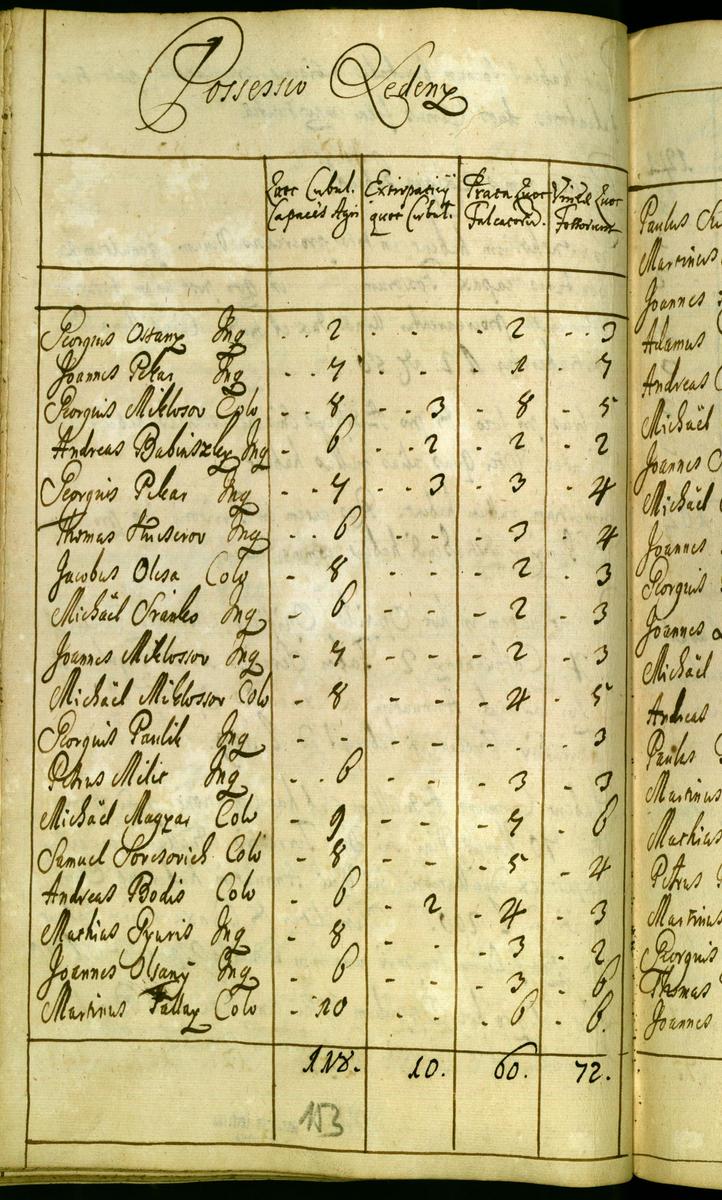 Possessio Ledenÿ
Quot Cubul. Capacis Agri | Extirpatiy quot Cubul. | Prata Quot Falcatorū. | Vinea Quot Fossorum
Georgius Ostanÿ Inq - - 2 - - - 2 - - 3
Joannes Pekar Inq - - 7 - - - 1 - 7
Georgius Miklosov Colo - - 8 - - 3 - 8 - 5
Andreas Babinszkÿ Inq - 6 - - 2 - 2 - 2
Georgius Pekar Inq - - 7 - - 3 - 3 - 4
Thomas Inq - - 6 - - - 3 - 4
Jacobus Olesa Colo - 8 - - - 2 - 3
Michaël Inq - 6 - - - 2 - 3
Joannes Miklossov Inq - 7 - - - 2 - 3
Michaël Miklossov Colo - 8 - - - 4 - 5
Georgius Paulik Inq - - - - - - 3
Petrus Milic Inq - 6 - - - 3 - 3
Michaël Magÿar Colo - 9 - - - 7 - 6
Samuel Colo - 8 - - - 5 - 4
Andreas Bodis Colo - 6 - 2 - 4 - 3
Mathias Inq - 8 - - - 3 - 2
Joannes Olsanÿ Inq - 6 - - - 3 - 6
Martinus Colo - 10 - - - 6 - 6.
118. 10. 60. 72.
153
Paulus
Martinus
Joannes
Adamus
Andreas
Michaël
Joannes
Michaël
Joannes
Georgius
Joannes
Michaël
Andreas
Paulus
Martinus
Mathias
Petrus
Martinus
Georgius
Thomas
Joannes